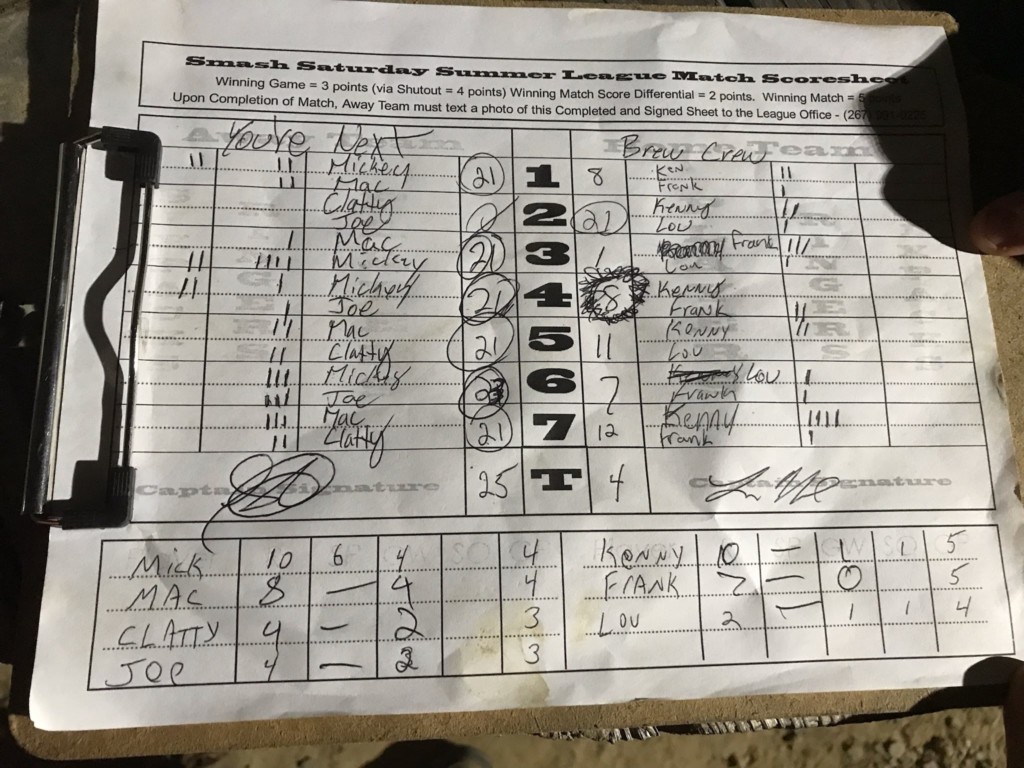 Smash Saturday Summer League Match Scoresheet
Winning Game = 3 points (via Shutout = 4 points) Winning Match Score Differential = 2 points. Winning Match = 5
Upon Completion of Match, Away Team must text a photo of this Completed and Signed Sheet to the League Office - (267)
You're Next Brew Crew
Away Team Home Team
II II Mickey 21 1 8 Ken II
II Mac Frank I
Clatty 2 21 Kenny II
Joe Lou I
I Mac 21 3 1 Frank III
II IIII Mickey Lou
II I Mickey 21 4 8 Kenny
I Joe Frank II
II Mac 21 5 11 Kenny I
II Clatty Lou
III Mickey 6 7 Lou I
III Joe Frank I
III Mac 21 7 12 Kenny IIII
II Clatty Frank I
Captain Signature 25 T 4 Captain Signature
MICK 10 6 4 4 KENNY 10 — 1 1 5
MAC 8 — 4 4 FRANK 7 — 0 5
CLATTY 4 — 2 3 LOU 2 — 1 1 4
JOE 4 — 3